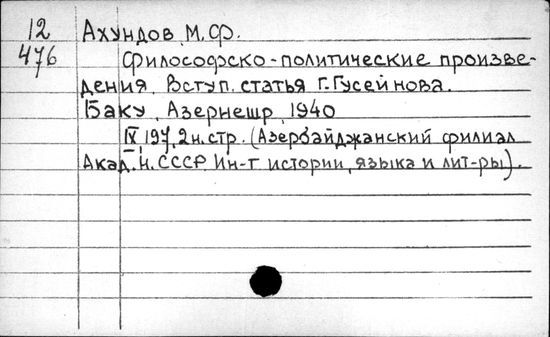 12 Ахундов, М.Ф.
476 Философско-политические произве-
дения. Вступ. статья Г. Гусейнова.
Баку, Азернешр, 1940
IX, 197, 2 н. стр. (Азербайджанский филиал
Акад. Н. СССР. Ин-т истории, языка и лит-ры).